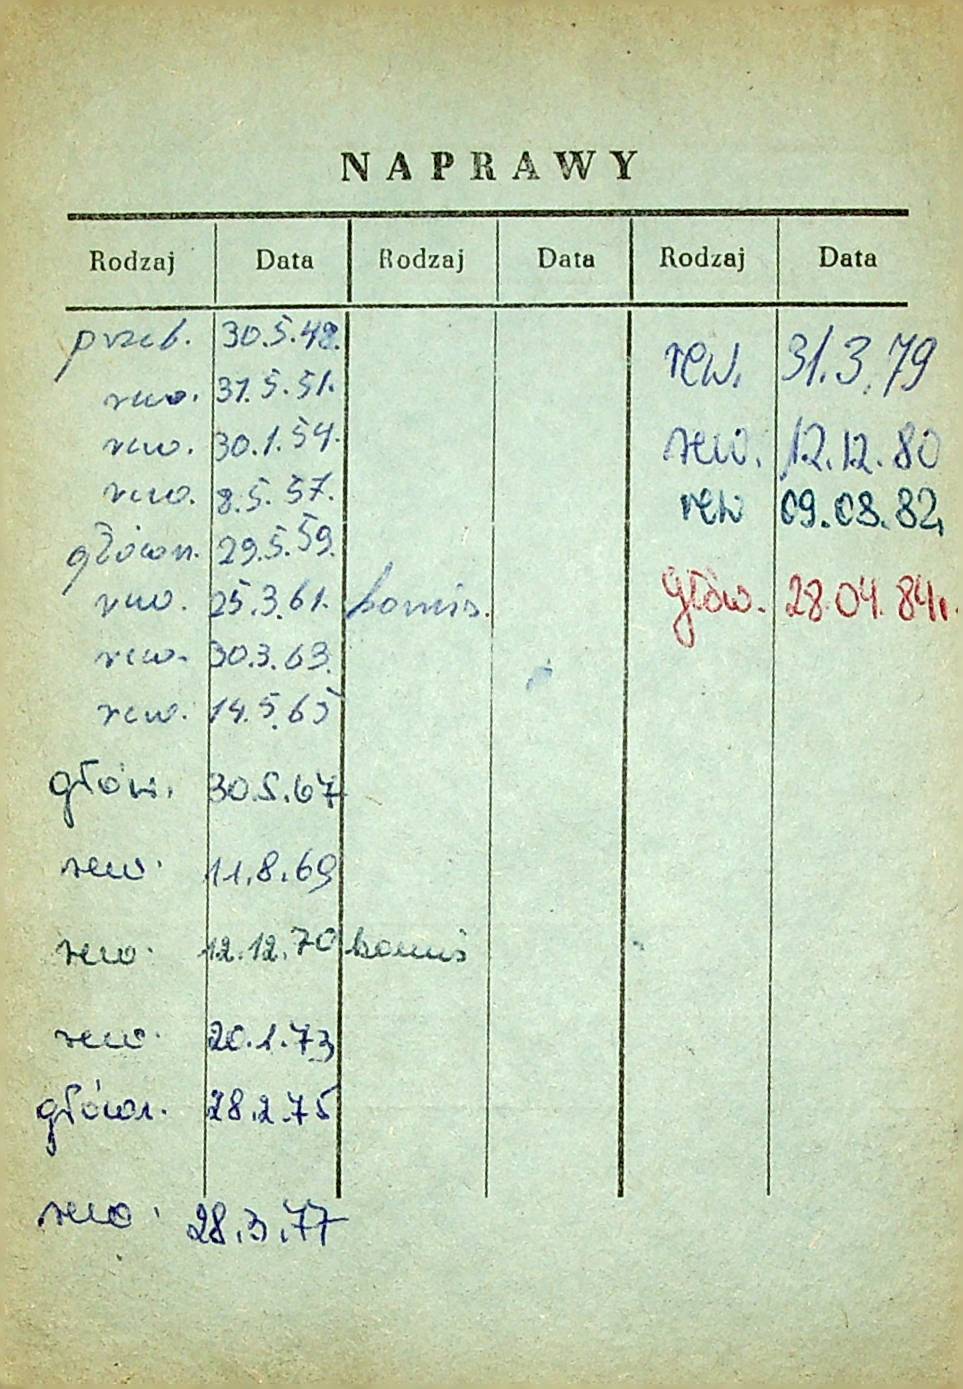 NAPRAWY
Rodzaj Data Rodzaj Data Rodzaj Data
przeb. 30.5.48.
rew. 31.5.51.
rew. 30.1.54.
rew. 8.5.57.
główn. 29.5.59.
rew. 25.3.61.
rew. 30.3.63.
rew. 14.5.65
główn. 30.5.67
rew. 11.8.69
rew. 12.12.70
rew. 20.1.73
główn. 28.2.75
rew. 28.3.77
rew. 31.3.79
rew. 12.12.80
rew 09.08.82,
głów. 28.04.84r.